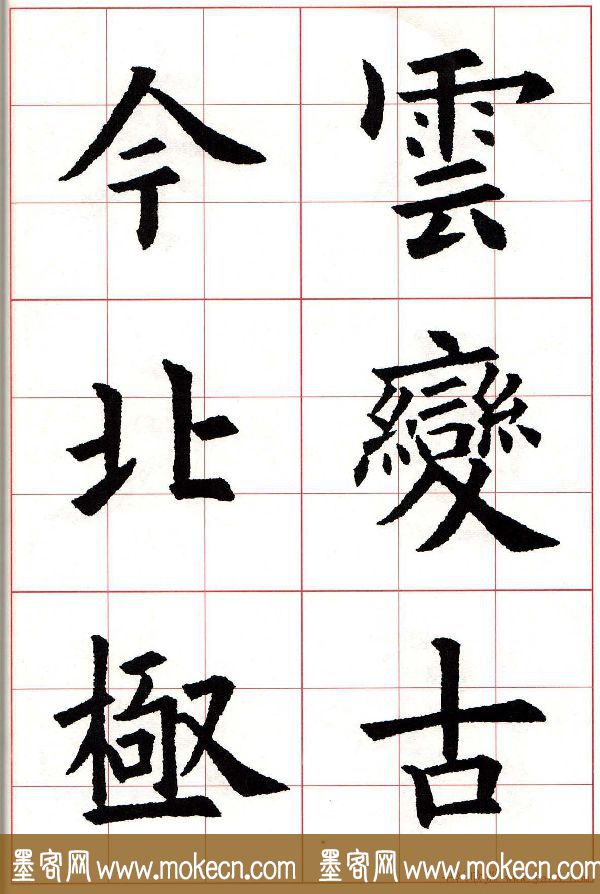 雲變古
今北極
墨客网 www.mokecn.com 墨客网 www.mokecn.com